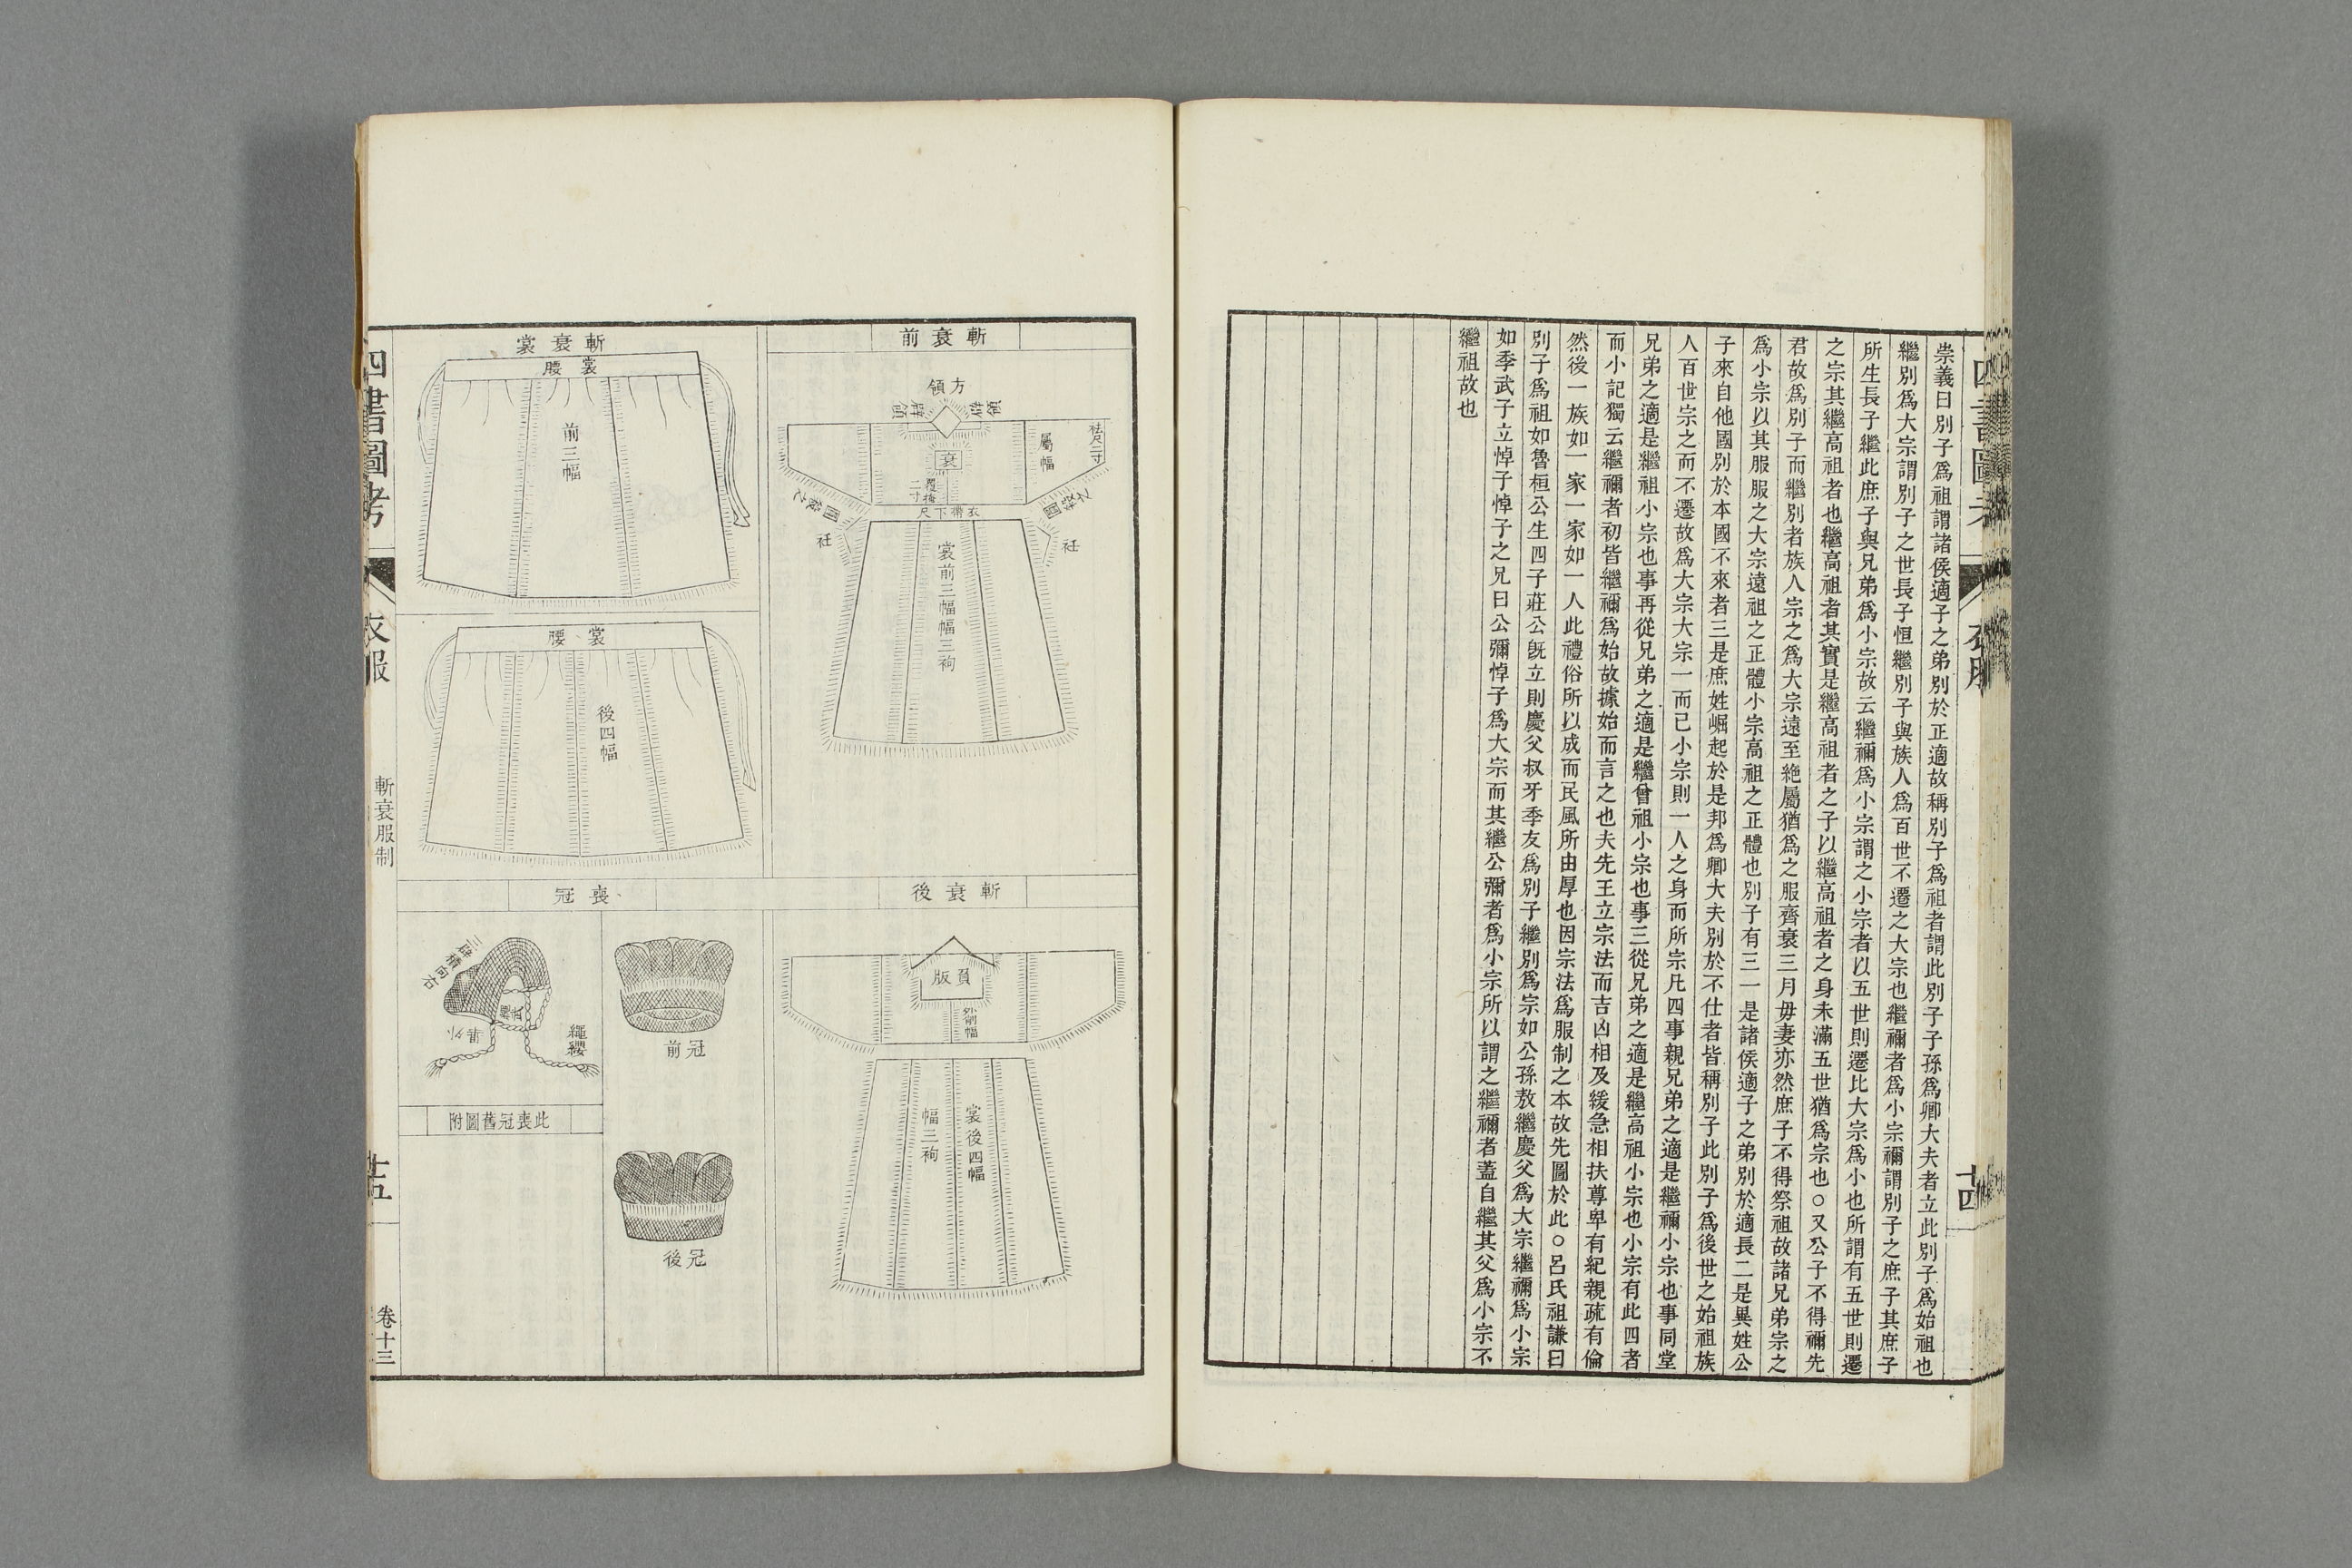 崇義曰別子爲祖謂諸侯適子之弟別於正適故稱別子爲祖者謂此別子子孫爲卿大夫者立此別子爲始祖也
繼別爲大宗謂別子之世長子恒繼別子與族人爲百世不遷之大宗也繼禰者爲小宗禰謂別子之庶子其庶子
所生長子繼此庶子與兄弟爲小宗故云繼禰爲小宗謂之小宗者以五世則遷比大宗爲小也所謂有五世則遷
之宗其繼高祖者也繼高祖者其實是繼高祖者之子以繼高祖者之身未滿五世猶爲宗也○又公子不得禰先
君故爲別子而繼別者族人宗之爲大宗遠至絶屬猶爲之服齊衰三月毋妻亦然庶子不得祭祖故諸兄弟宗之
爲小宗以其服服之大宗遠祖之正體小宗高祖之正體也別子有三一是諸侯適子之弟別於適長二是異姓公
子來自他國別於本國不來者三是庶姓崛起於是邦爲卿大夫別於不仕者皆稱別子此別子爲後世之始祖族
人百世宗之而不遷故爲大宗大宗一而已小宗則一人之身而所宗凡四事親兄弟之適是繼禰小宗也事同堂
兄弟之適是繼祖小宗也事再從兄弟之適是繼曾祖小宗也事三從兄弟之適是繼高祖小宗也小宗有此四者
而小記獨云繼禰者初皆繼禰爲始故據始而言之也夫先王立宗法而吉凶相及緩急相扶尊卑有紀親疏有倫
然後一族如一家一家如一人此禮俗所以成而民風所由厚也因宗法爲服制之本故先圖於此○呂氏祖謙曰
別子爲祖如魯桓公生四子莊公旣立則慶父叔牙季友爲別子繼別爲宗如公孫敖繼慶父爲大宗繼禰爲小宗
如季武子立悼子悼子之兄曰公彌悼子爲大宗而其繼公彌者爲小宗所以謂之繼禰者蓋自繼其父爲小宗不
繼祖故也
十四
斬衰前
方領
衰
屬幅
袪尺二寸
衣帶下尺
衽
衽
裳前三幅幅三袧
斬衰後
負版
裳後四幅
幅三袧
斬衰裳
裳腰
前三幅
裳腰
後四幅
喪冠
冠前
冠後
三辟積向右
繩纓
外畢
此喪冠舊圖附
四書圖考
衣服
斬衰服制
十五
卷十三